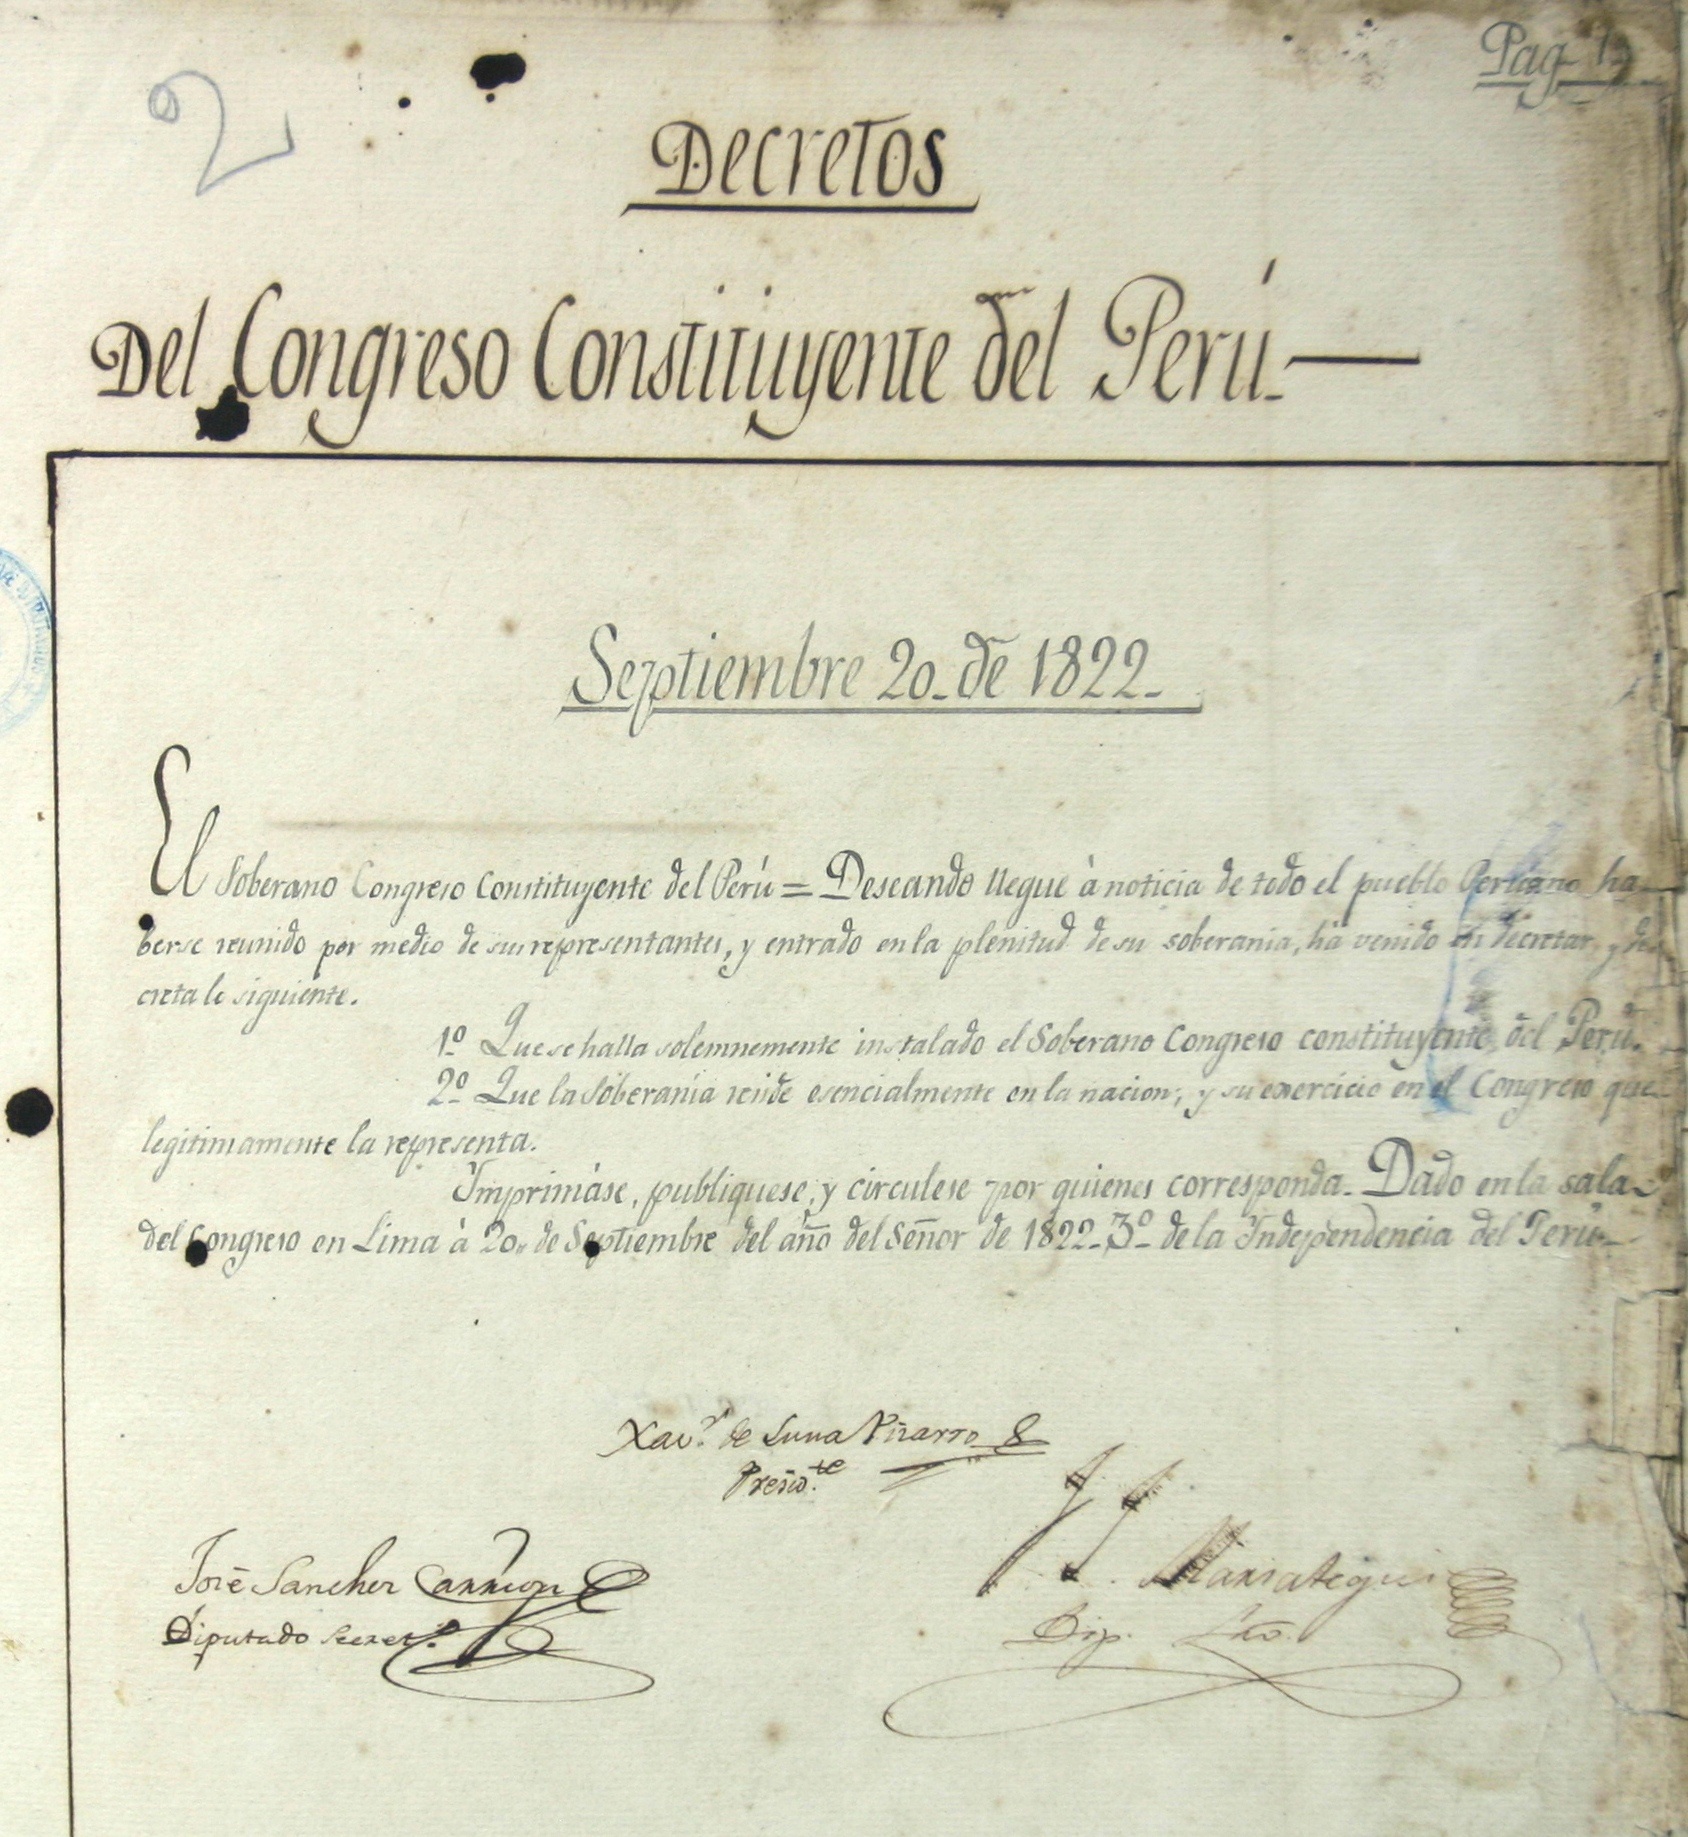 Pag. 1
2
Decretos
Del Congreso Constituyente del Perú.—
Septiembre 20. de 1822.
El Soberano Congreso Constituyente del Perú = Deseando llegue à noticia de todo el pueblo Peruano ha-
berse reunido por medio de sus representantes, y entrado en la plenitud de su soberania, ha venido en decretar, y de-
creta lo siguiente.
1º Que se halla solemnemente instalado el Soberano Congreso constituyente del Perú.
2º Que la Soberanía reside esencialmente en la nacion; y su exercicio en el Congreso que
legitimamente la representa.
Imprimáse, publiquese, y circulese por quienes corresponda. Dado en la sala
del Congreso en Lima à 20,, de Septiembre del año del Señor de 1822. 3º de la Independencia del Perú.
Xavr. de Luna Pizarro
Presidte.
José Sanchez Carrion
Diputado Secreto.
Mariategui
Dip. Srio.